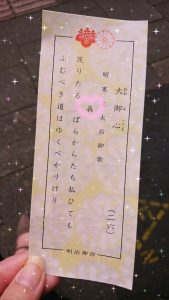 大御心
昭憲皇太后御歌
(二六)
義
茂りたる うばらからたち払ひても
ふむべき道はゆくべかりけり
明治神宮